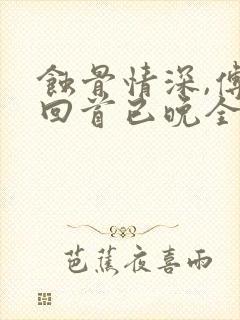 蚀骨情深,傅
回首已晚全
芭蕉夜喜雨